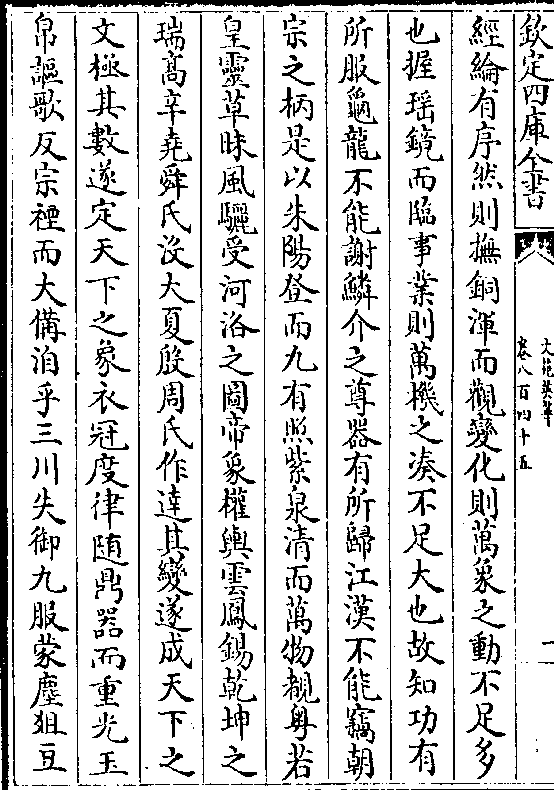 欽定四庫全書
文苑英華
卷八百四十五
一
經綸有序然則撫銅渾而觀變化則萬象之動不足多
也握瑶鏡而臨事業則萬機之凑不足大也故知功有
所服龜龍不能謝鱗介之尊器有所歸江漢不能竊朝
宗之柄是以朱陽登而九有照紫泉清而萬物覩粤若
皇靈草昧風驪受河洛之圖帝象權輿雲鳳錫乾坤之
瑞髙辛堯舜氏沒大夏殷周氏作達其變遂成天下之
文極其數遂定天下之象衣冠度律随鼎器而重光玉
帛謳歌反宗禋而大備洎乎三川失御九服蒙塵狙豆